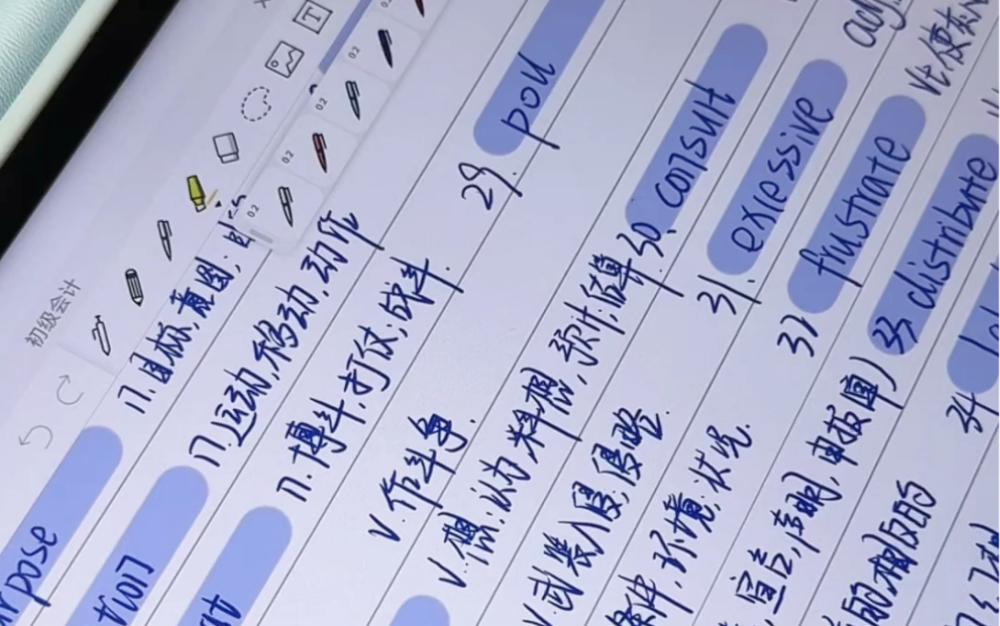 初级会计
T
0.2
0.2
0.2
0.2
rpose
n.目标,意图;目
tion
n.运动,移动,动作
n.博斗.打仗,战斗.
v.作斗争.
v.想.认为.料想,预计,估算
v.武装入侵,侵略.
条件,环境,状况.
宣言,声明,申报(
的,相反的
29. poll
30. consult
31. exlessive
32 frustrate
33 distribute
34
adj
vt.使